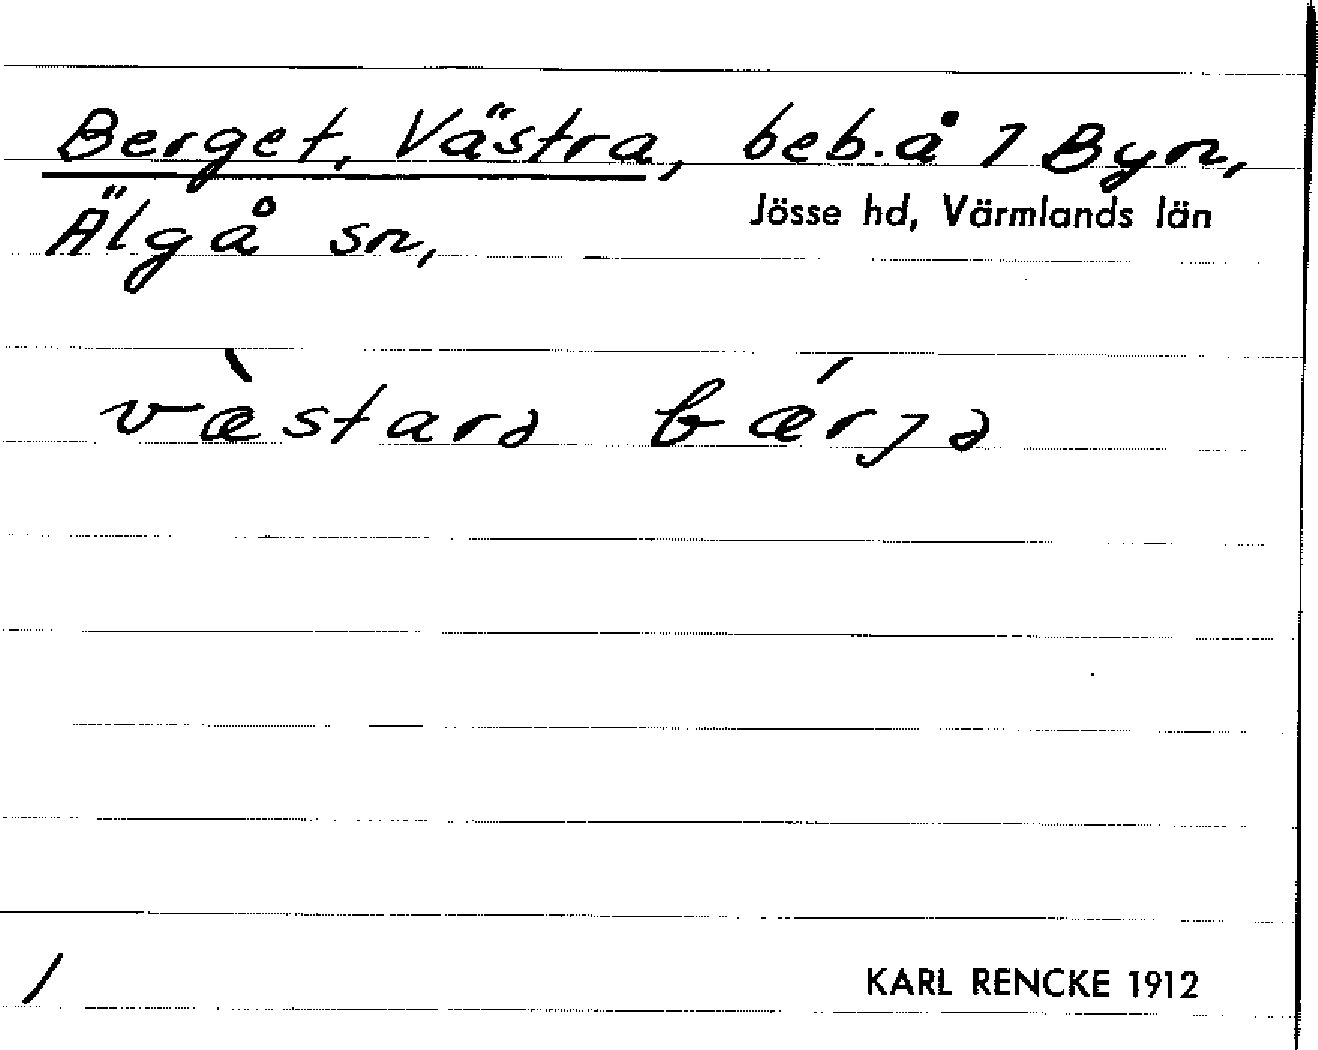 Berget, Västra, beb. å 1 Byn,
Älgå sn, Jösse hd, Värmlands län
væ̀starə bǽrjə
/
KARL RENCKE 1912